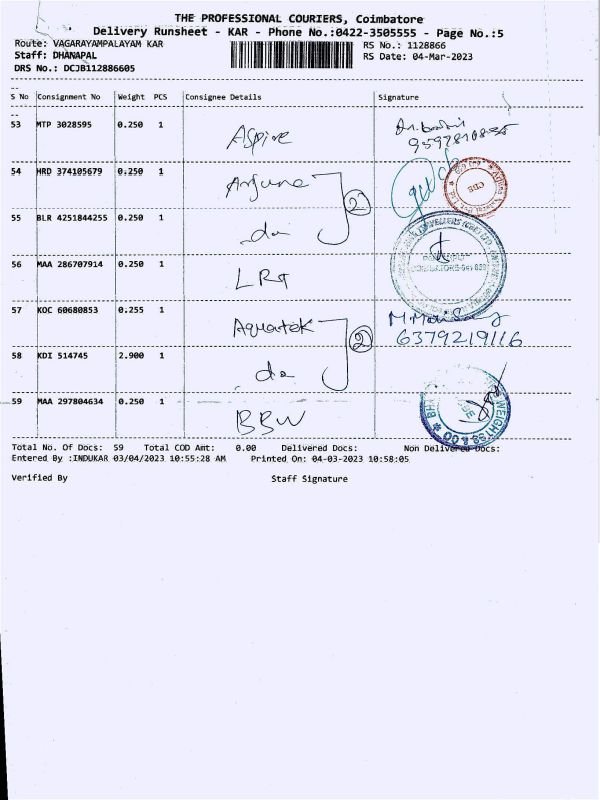 THE PROFESSIONAL COURIERS, Coimbatore
Delivery Runsheet - KAR - Phone No.:0422-3505555 - Page No.:5
Route: VAGARAYAMPALAYAM KAR RS No.: 1128866
Staff: DHANAPAL RS Date: 04-Mar-2023
DRS No.: DCJB112886605
--
S No Consignment No Weight PCS Consignee Details Signature
--
53 MTP 3028595 0.250 1 Aspire
54 HRD 374105679 0.250 1 Arjuna
55 BLR 4251844255 0.250 1 do 2
56 MAA 286707914 0.250 1 LRT
57 KOC 60680853 0.255 1 Aquatek 6379219116
58 KDI 514745 2.900 1 do 2
59 MAA 297804634 0.250 1 BBW
Total No. Of Docs: 59 Total COD Amt: 0.00 Delivered Docs: Non Delivered Docs:
Entered By :INDUKAR 03/04/2023 10:55:28 AM Printed On: 04-03-2023 10:58:05
Verified By Staff Signature